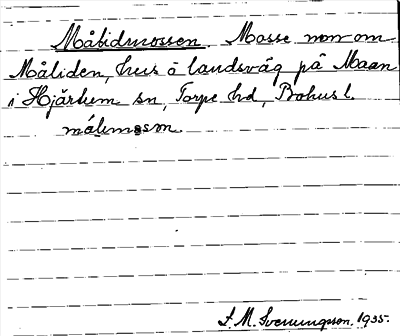 Målidmossen. Mosse norr om
Måliden, hus å landsväg på Maan
i Hjärtum sn, Torpe hd, Bohusl.
målimåsm.
S. M. Svenungsson. 1935.